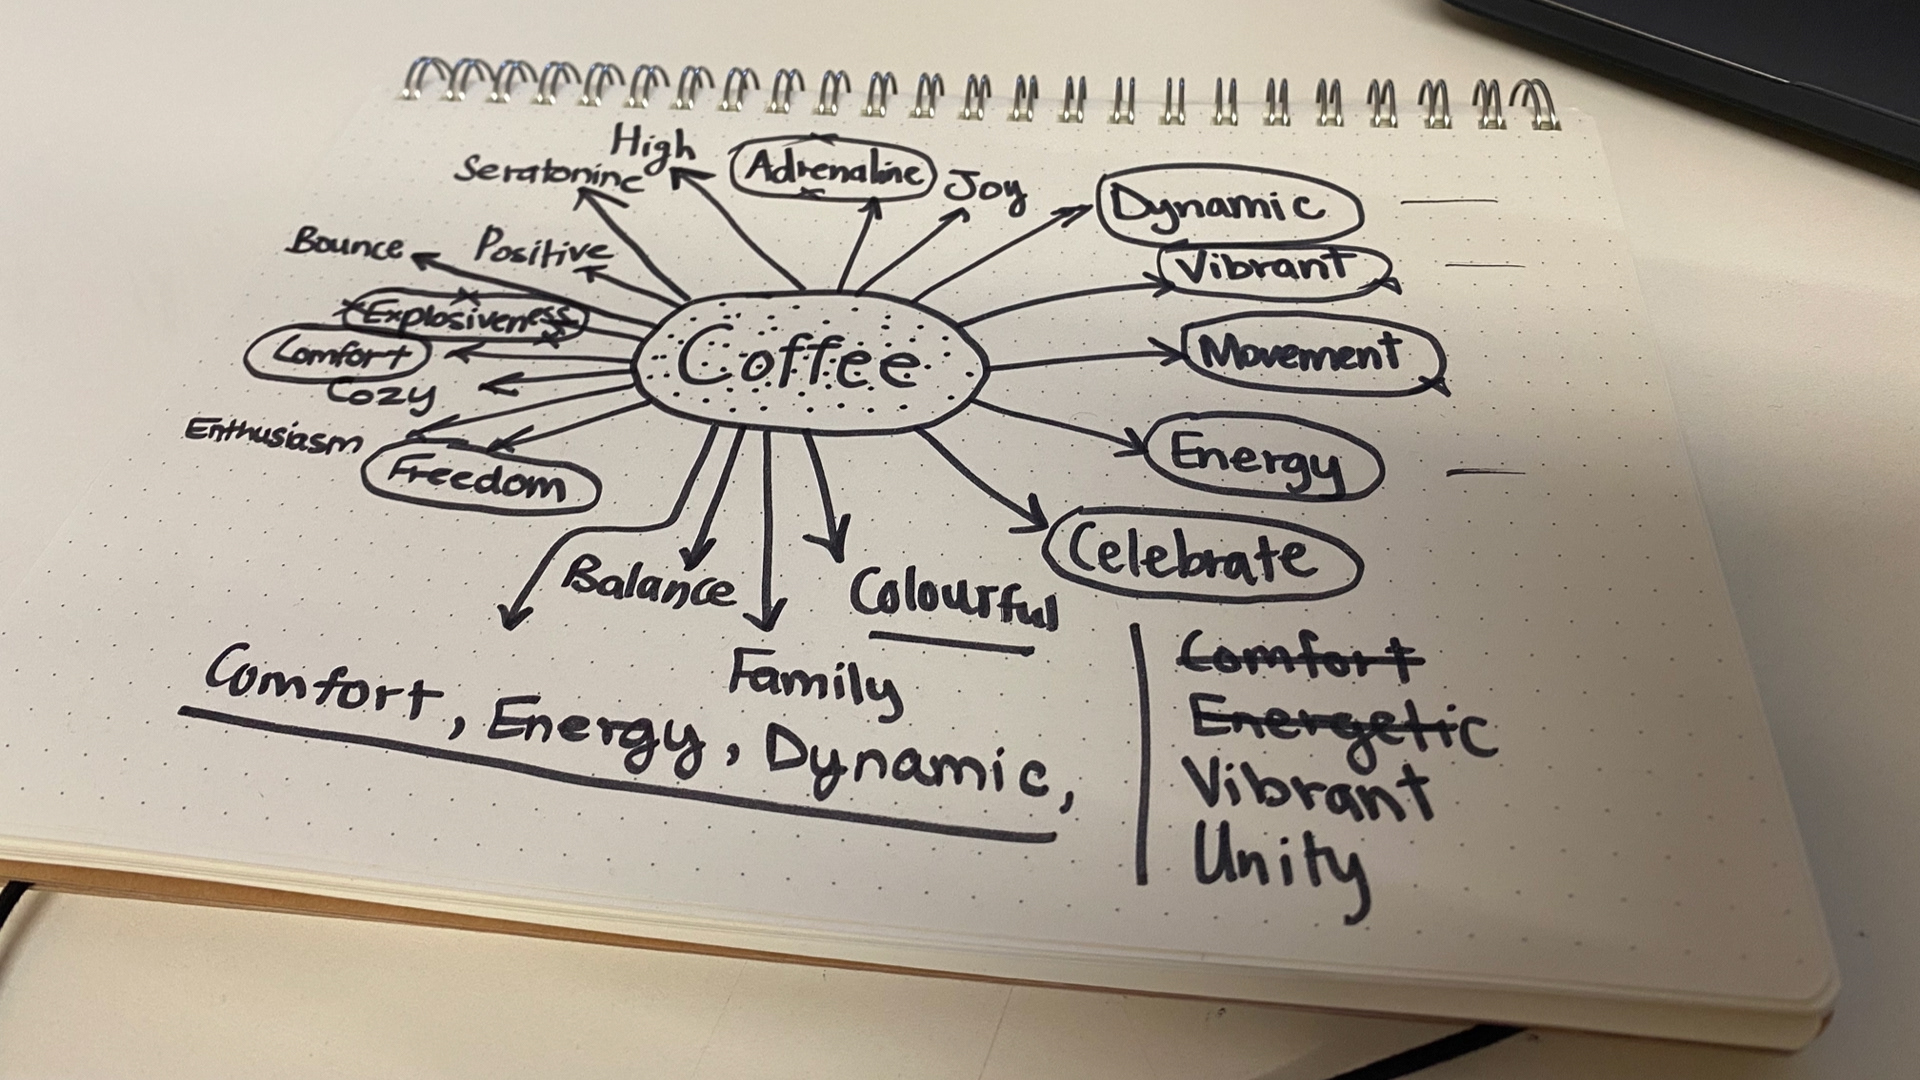 High
Seratonine
Adrenaline
Joy
Dynamic
Bounce
Positive
Vibrant
Explosiveness
Comfort
Coffee
Movement
Cozy
Enthusiasm
Freedom
Energy
Celebrate
Balance
Colourful
Family
Comfort, Energy, Dynamic,
Comfort
Energetic
Vibrant
Unity